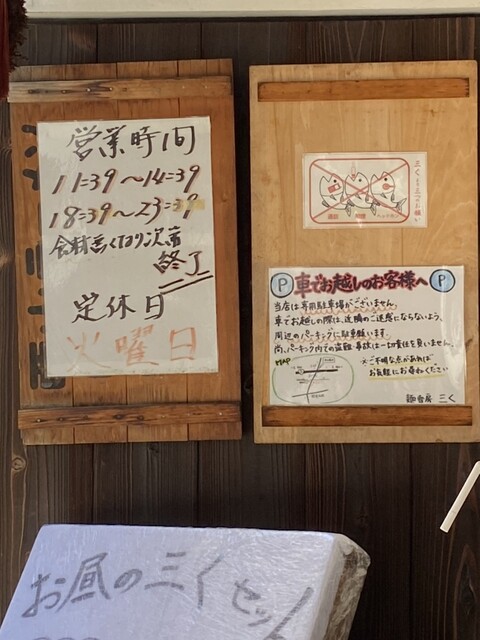 営業時間
11:39〜14:39
18:39〜23:39
食材無くなり次第
終了
定休日
火曜日
三くより三つのお願い
P 車でお越しのお客様へ P
当店は専用駐車場がございません。
車でお越しの際は、近隣のご迷惑にならないよう、
周辺のパーキングに駐車願います。
尚、パーキング内での盗難・事故は一切責任を負いません。
MAP
※ご不明な点があれば
お気軽にお尋ねください
麺香房 三く
お昼の三くセット